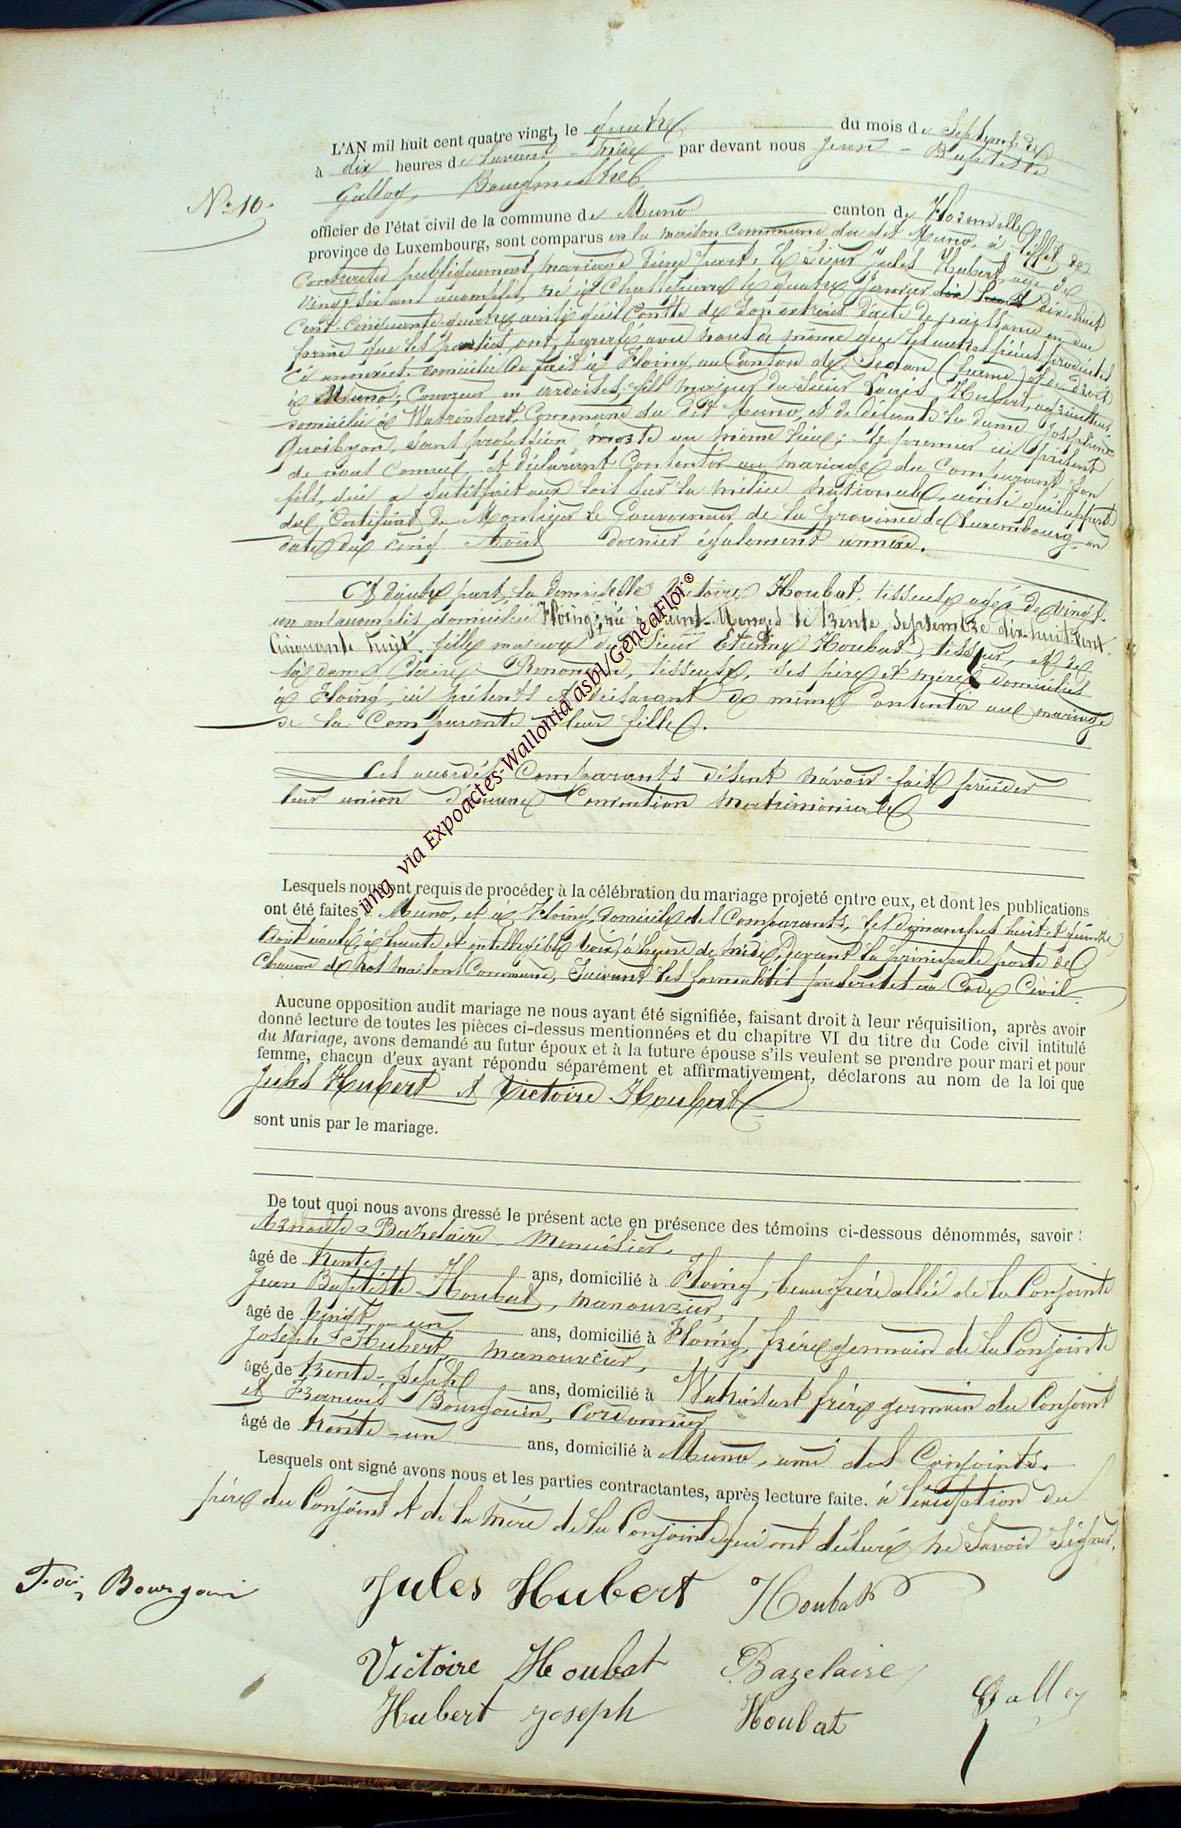 L'AN mil huit cent quatre vingt, le du mois de Septembre
à dix heures de par devant nous Jean-Baptiste
Galloy, Bourgmestre
N° 10.
officier de l'état civil de la commune de Muno canton de Florenville
province de Luxembourg, sont comparus en la maison commune du dit Muno, à l'effet de
Contracter publiquement mariage d'une part, le Sieur Jules Hubert, âgé de
vingt six ans accomplis, né à le quatre Janvier dix huit
cent cinquante-quatre, ainsi qu'il conste de son extrait d'acte de naissance en due
forme que les parties ont paraphé avec nous de même que les autres pièces produites
ci annexées, domicilié de fait à Floing, au Canton de Sedan (france) et de droit
à Muno, Couvreur en ardoises, fils majeur du Sieur Louis Hubert,
domicilié à Watrinsart, Commune du dit Muno, et de défunte la dame Joséphine
sans profession, morte au même lieu; le premier ici présent
de nous connu, et déclarant Consentir au mariage du Comparant son
fils, qui a satisfait aux lois sur la milice nationale,
du Certificat de Monsieur le Gouverneur de la province de Luxembourg, en
date du cinq Août dernier également annexé.
Et d'autre part, la demoiselle Victoire Houbat, tisseuse, âgée de vingt-
un ans accomplis, domiciliée à Floing, née à Saint-Menges le trente Septembre dix-huit cent
Cinquante huit, fille majeure du Sieur Etienne Houbat, tisseur, et de
la dame Claire tisseuse, ses père et mère, domiciliés
à Floing, ici présents et déclarant de même Consentir au mariage
de la Comparante leur fille.
Les accordés Comparants disent n'avoir fait précéder
leur union d'aucune Convention matrimoniale
Lesquels nous ont requis de procéder à la célébration du mariage projeté entre eux, et dont les publications
ont été faites à Muno, et à Floing, domiciles des Comparants, les dimanches huit et quinze
Août à haute et intelligible voix, à l'heure de midi, devant la principale porte de
chacune de nos maisons Communes, Suivant les formalités prescrites au Code Civil
Aucune opposition audit mariage ne nous ayant été signifiée, faisant droit à leur réquisition, après avoir
donné lecture de toutes les pièces ci-dessus mentionnées et du chapitre VI du titre du Code civil intitulé
du Mariage, avons demandé au futur époux et à la future épouse s'ils veulent se prendre pour mari et pour
femme, chacun d'eux ayant répondu séparément et affirmativement, déclarons au nom de la loi que
Jules Hubert et Victoire Houbat
sont unis par le mariage.
De tout quoi nous avons dressé le présent acte en présence des témoins ci-dessous dénommés, savoir:
Bazelaire, Menuisier,
âgé de trente ans, domicilié à Floing, beau frère allié de la Conjointe
Jean Baptiste Houbat, manouvrier,
âgé de vingt-un ans, domicilié à Floing, frère germain de la Conjointe
Joseph Hubert, manouvrier,
âgé de trente-sept ans, domicilié à Watrinsart frère germain du Conjoint
et François Bourgouin, Cordonnier
âgé de trente-un ans, domicilié à Muno, ami des Conjoints.
Lesquels ont signé avons nous et les parties contractantes, après lecture faite. à l'exception du
père du Conjoint et de la mère de la Conjointe qui ont déclaré ne Savoir Signer.
Jules Hubert Houbat
Victoire Houbat Bazelaire
Hubert Joseph Houbat Galloy
img via Expoactes-Wallonia asbl/GeneaFlor©